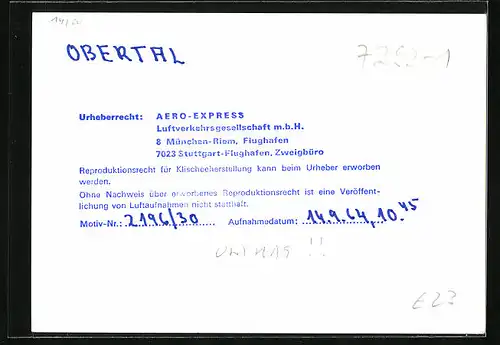 14/00
OBERTAL
7252-1
Urheberrecht: AERO-EXPRESS
Luftverkehrsgesellschaft m.b.H.
8 München-Riem, Flughafen
7023 Stuttgart-Flughafen, Zweigbüro
Reproduktionsrecht für Klischeeherstellung kann beim Urheber erworben
werden.
Ohne Nachweis über erworbenes Reproduktionsrecht ist eine Veröffent-
lichung von Luftaufnahmen nicht statthaft.
Motiv-Nr.: 2196/30 Aufnahmedatum: 14.9.64, 10.45
!!